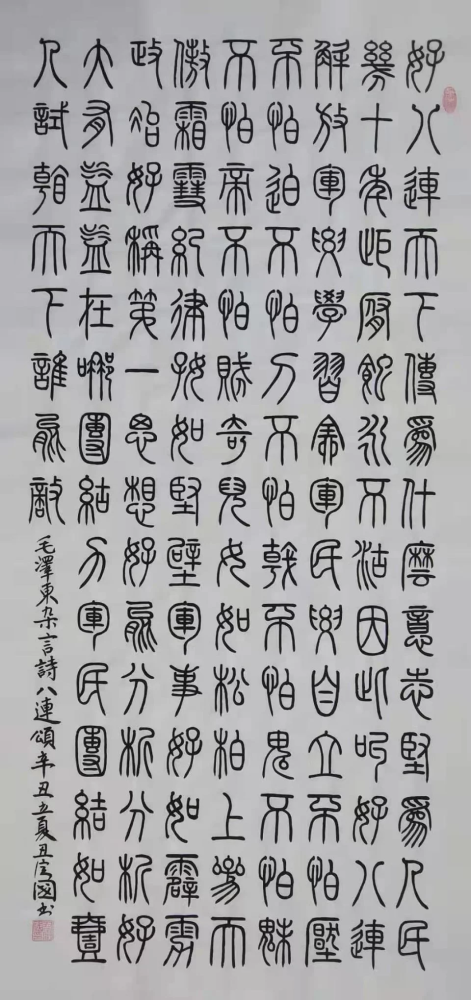 好八連天下傳爲什麽意志堅爲人民
幾十年拒腐蝕永不沾因此叫好八連
解放軍要學習全軍民要自立不怕壓
不怕迫不怕刀不怕戟不怕鬼不怕魅
不怕帝不怕賊奇兒女如松柏上參天
傲霜雪紀律好如堅壁軍事好如霹靂
政治好稱第一思想好能分析分析好
大有益益在哪團結力軍民團結如壹
人試看天下誰能敵
毛澤東杂言詩八連頌辛丑立夏國书